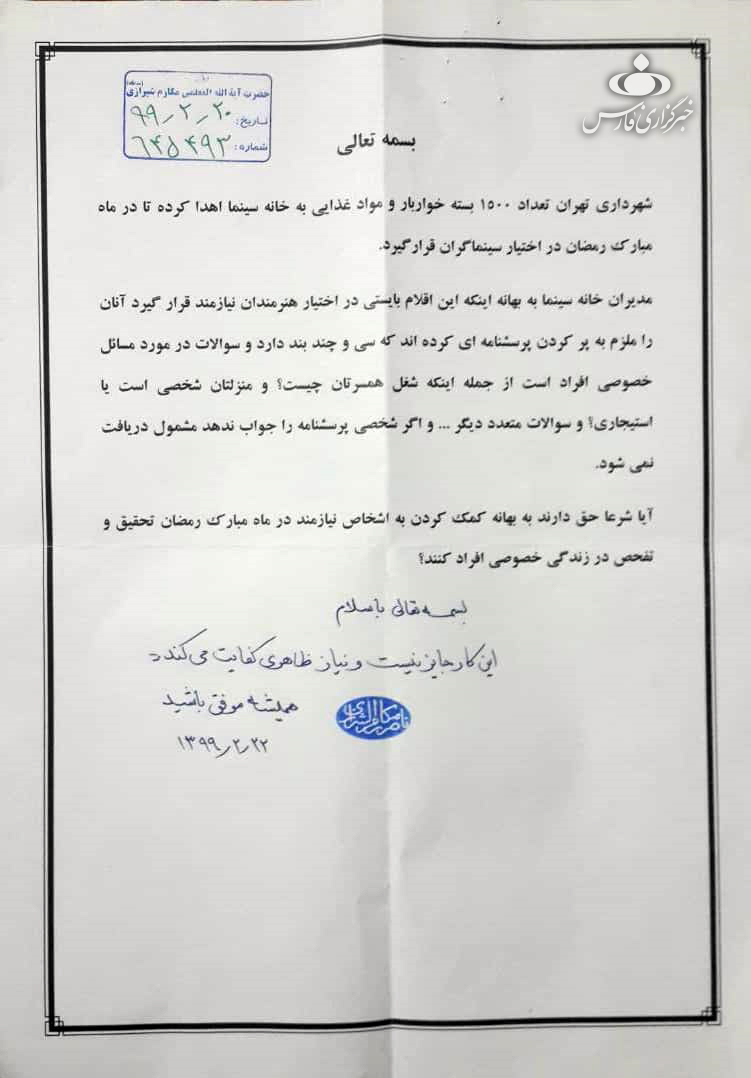 خبرگزاری فارس
حضرت آیة الله العظمی مکارم شیرازی
تاریخ: ۹۹٫۲٫۲۰
شماره: ۶۴۵۴۹۳
بسمه تعالی
شهرداری تهران تعداد ۱۵۰۰ بسته خواربار و مواد غذایی به خانه سینما اهدا کرده تا در ماه
مبارک رمضان در اختیار سینماگران قرارگیرد.
مدیران خانه سینما به بهانه اینکه این اقلام بایستی در اختیار هنرمندان نیازمند قرار گیرد آنان
را ملزم به پر کردن پرسشنامه ای کرده اند که سی و چند بند دارد و سوالات در مورد مسائل
خصوصی افراد است از جمله اینکه شغل همسرتان چیست؟ و منزلتان شخصی است یا
استیجاری؟ و سوالات متعدد دیگر ... و اگر شخصی پرسشنامه را جواب ندهد مشمول دریافت
نمی شود.
آیا شرعا حق دارند به بهانه کمک کردن به اشخاص نیازمند در ماه مبارک رمضان تحقیق و
تفحص در زندگی خصوصی افراد کنند؟
بسمه تعالی باسلام
این کار جایز نیست و نیاز ظاهری کفایت می کند
همیشه موفق باشید
ناصر مکارم الشیرازی
۱۳۹۹٫۲٫۲۲